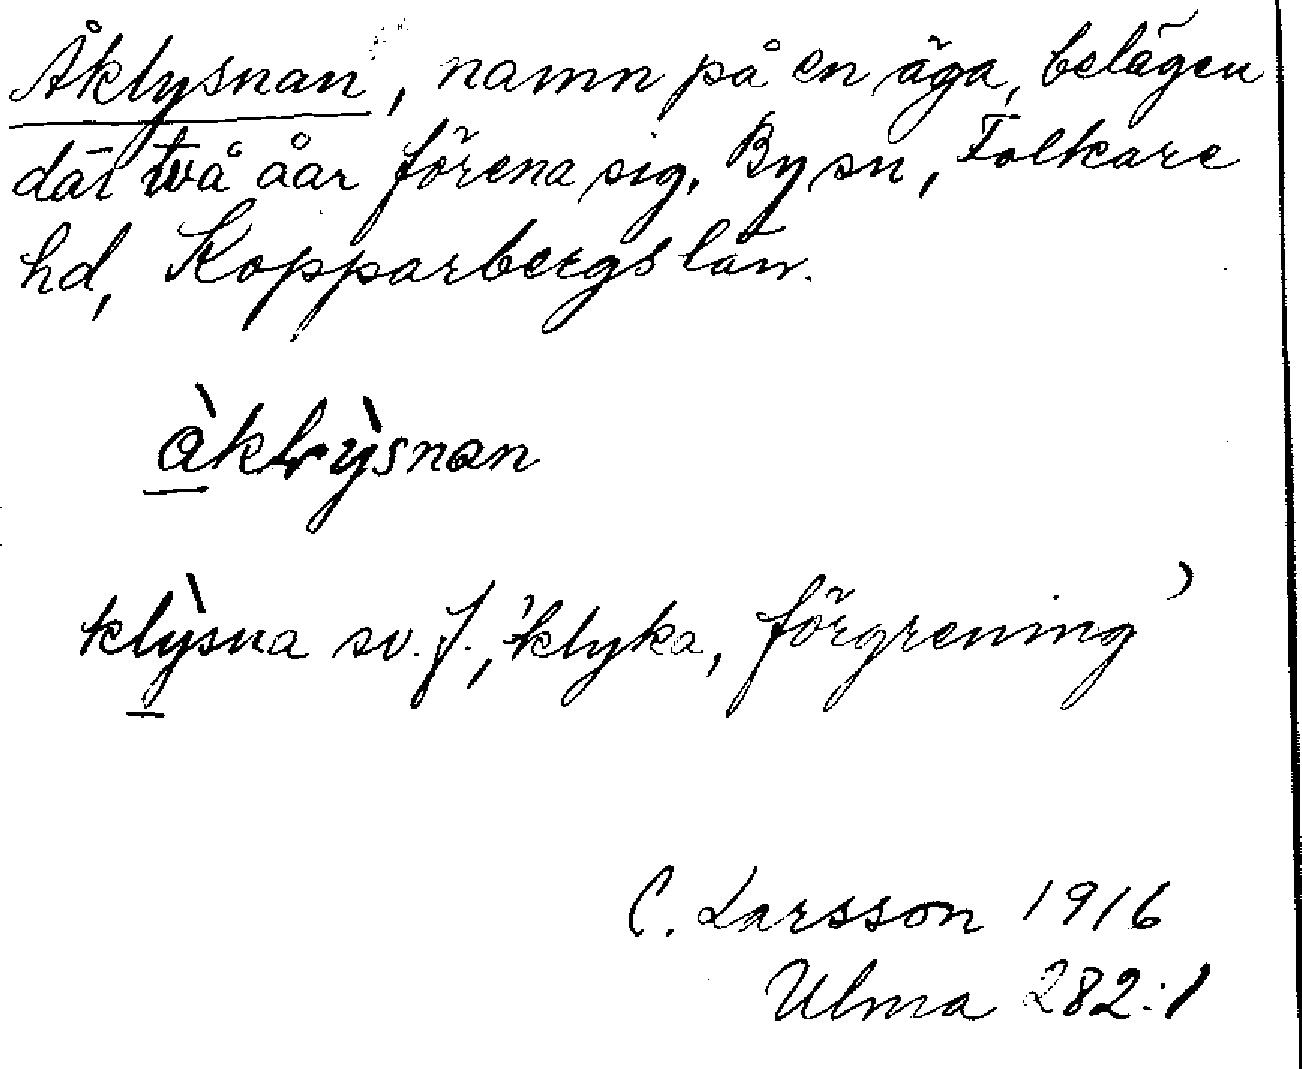 Åklysnan, namn på en äga, belägen
där två åar förena sig. By sn, Folkare
hd, Kopparbergs län.
àklysnan
klỳsna sv. f., 'klyka, förgrening'
C. Larsson 1916
Ulma 282:1